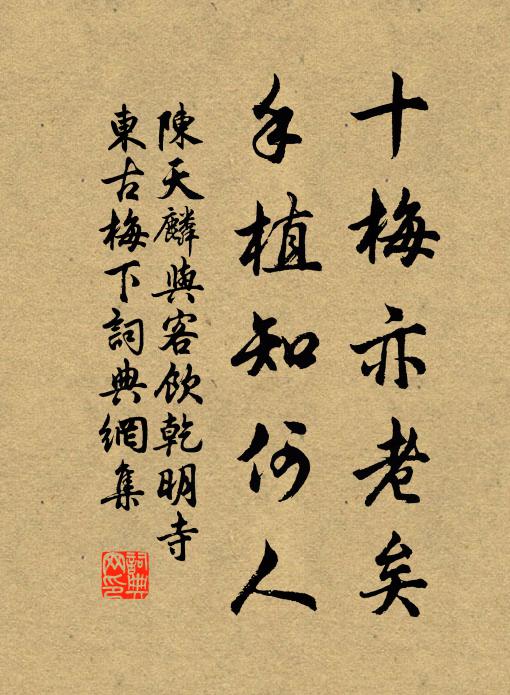 十梅亦老矣
手植知何人
陳天麟與客飲乾明寺
東古梅下詞典網集
詞典網印